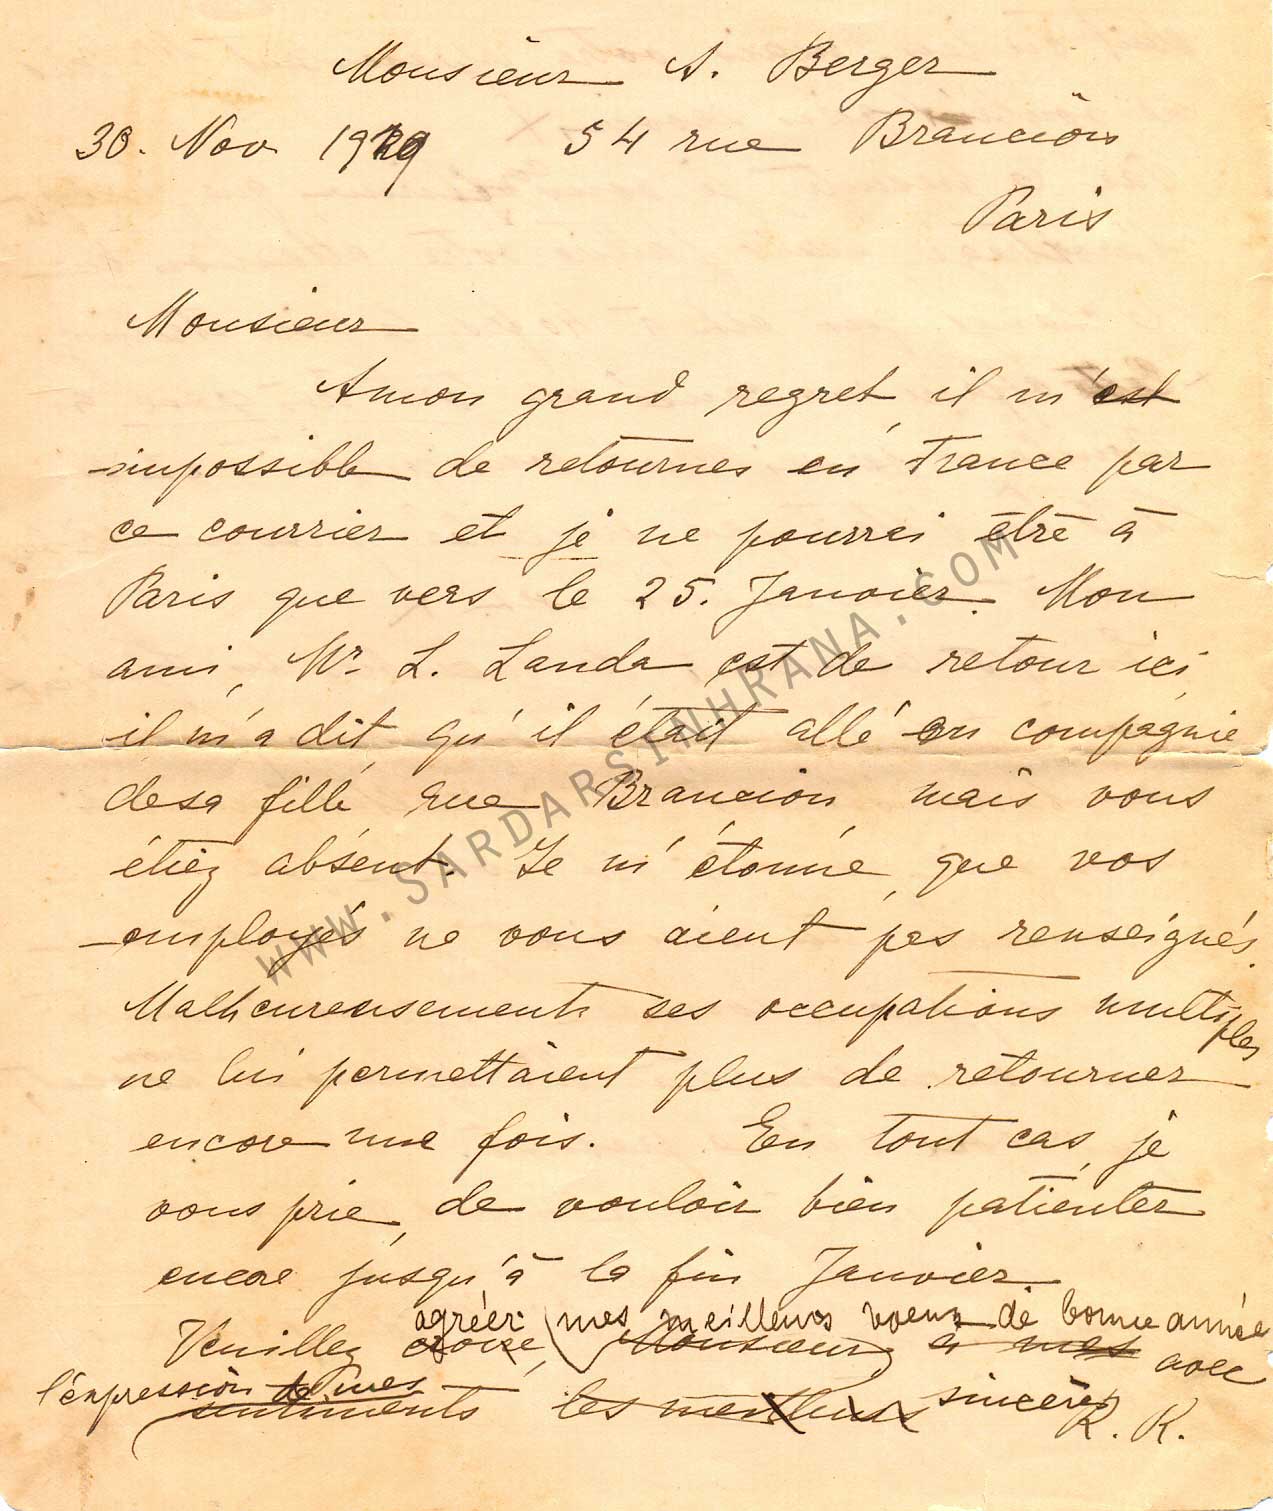 Monsieur A. Berger
30. Nov 1929 54 rue Brancion
Paris
Monsieur
A mon grand regret, il m'est
impossible de retourner en France par
ce courrier et je ne pourrai être à
Paris que vers le 25. Janvier. Mon
ami, Mr. L. Landa est de retour ici,
il m'a dit, qu'il était allé en compagnie
de sa fille, rue Brancion, mais vous
étiez absent. Je m'étonne, que vos
employés ne vous aient pas renseignés.
Malheureusement ses occupations multiples
ne lui permettaient plus de retourner
encore une fois. En tout cas, je
vous prie, de vouloir bien patienter
encore jusqu'à la fin Janvier.
agréer mes meilleurs voeux de bonne année
Veuillez croire, Monsieur, à mes avec
l'expression de mes
sentiments les meilleurs sincères
R. K.
WWW.SARDARSINHRANA.COM